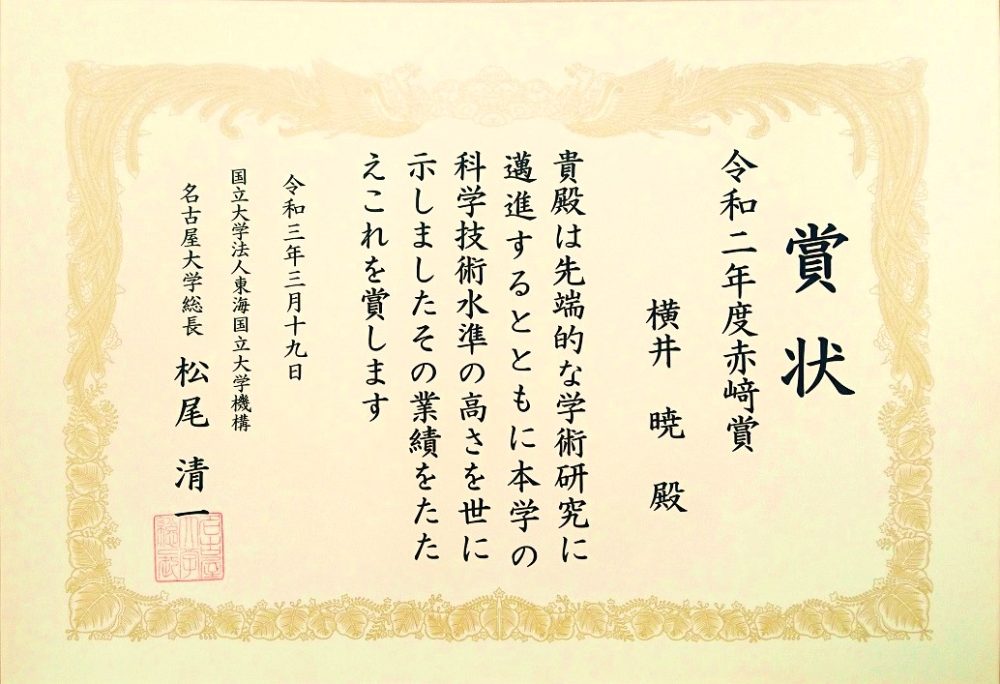 賞状
令和二年度赤﨑賞
横井 暁 殿
貴殿は先端的な学術研究に
邁進するとともに本学の
科学技術水準の高さを世に
示しましたその業績をたた
えこれを賞します
令和三年三月十九日
国立大学法人東海国立大学機構
名古屋大学総長 松尾 清一
名古屋大学総長